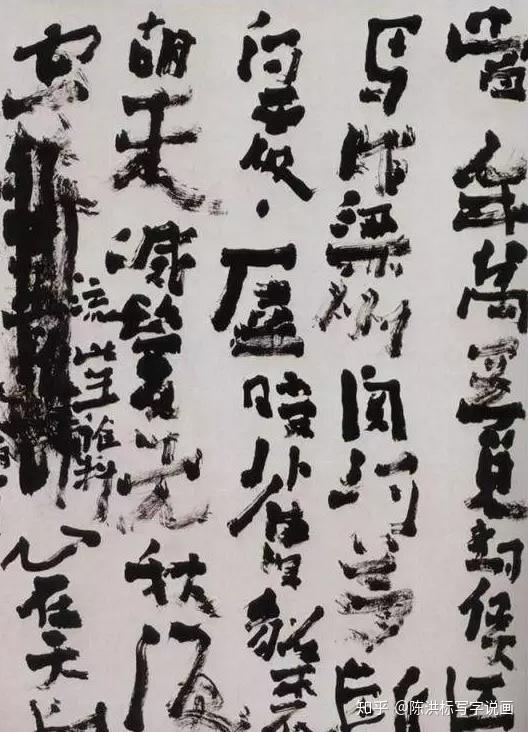 當年萬里覓封侯匹
馬戍梁州関河夢断
何處塵暗舊貂裘
胡未滅鬢先秋泪
空
流此生誰料
心在天山
知乎 @陈洪标写字说画